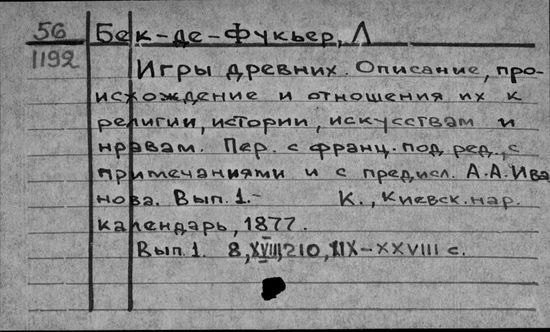 56 Бек-де-Фукьер, Л
1192 Игры древних. Описание, про-
исхождение и отношения их к
религии, истории, искусствам и
нравам. Пер. с франц. под ред., с
примечаниями и с предисл. А.А.Ива
нова. Вып.1.- К., Киевск.нар.
календарь, 1877.
Вып.1. 8, XVIII, 210, XIX-XXVIII с.